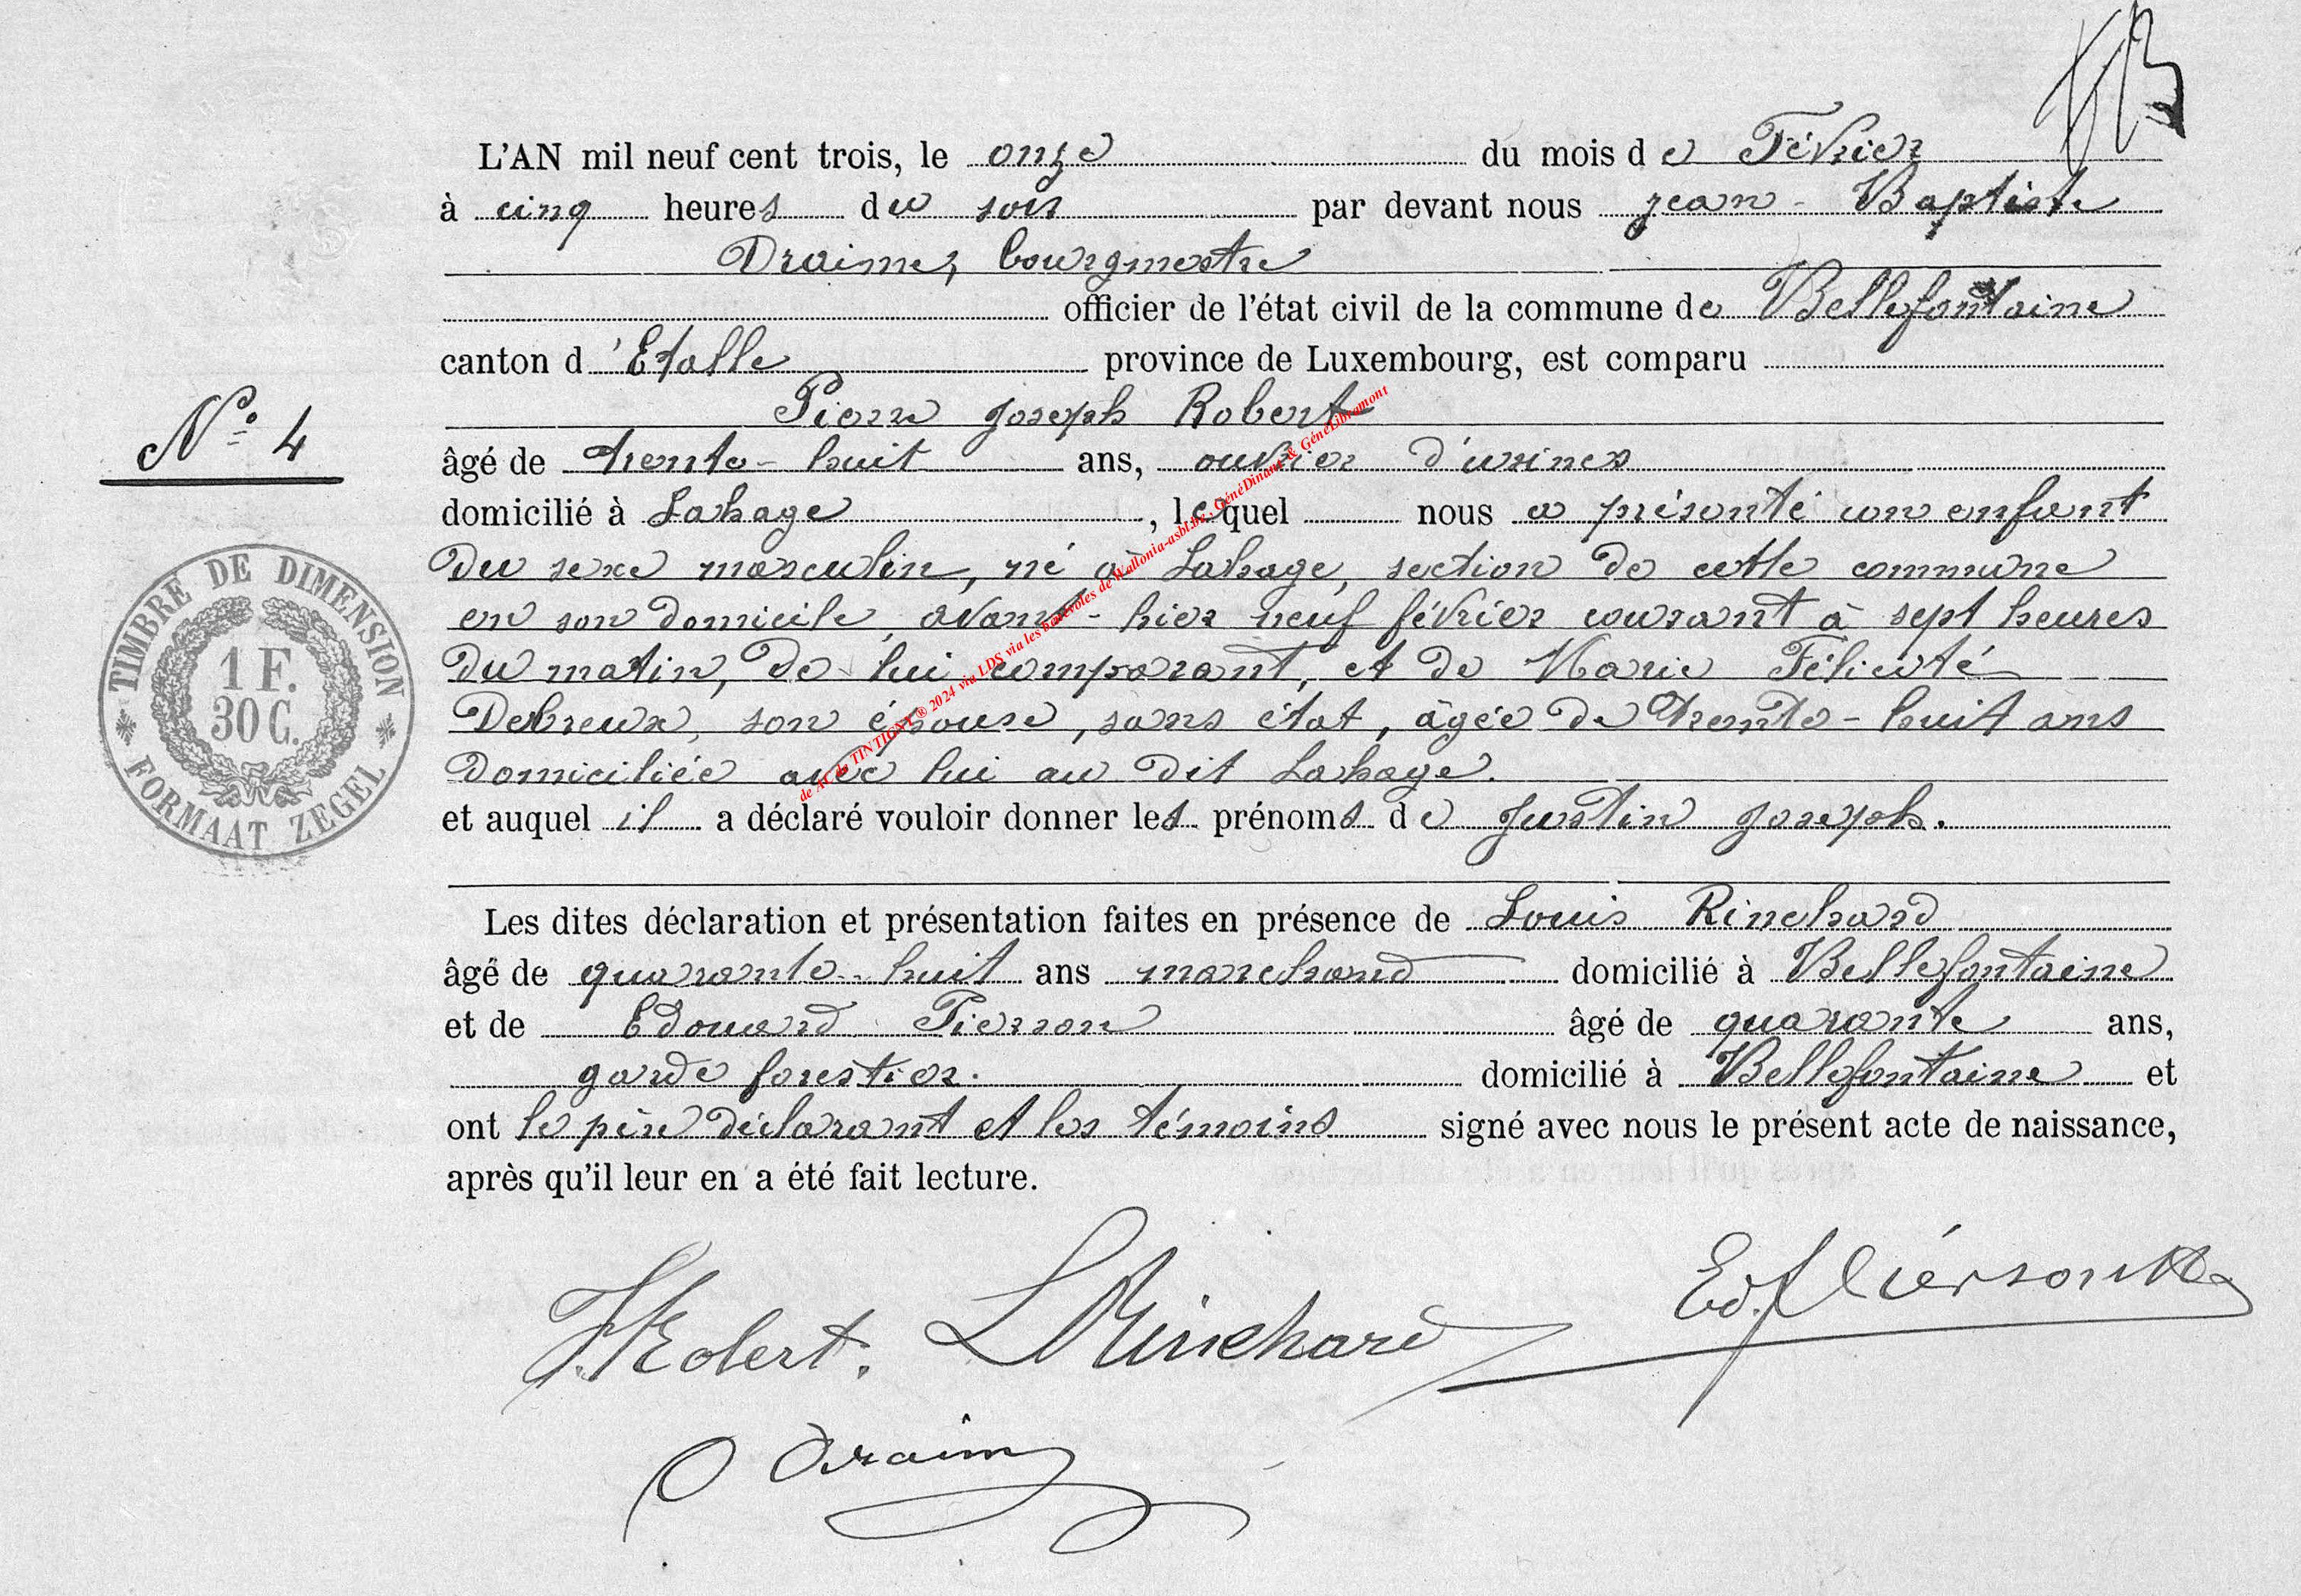 L'AN mil neuf cent trois, le onze du mois de Février
à cinq heures du soir par devant nous Jean-Baptiste
Draime, bourgmestre
officier de l'état civil de la commune de Bellefontaine
canton d'Etalle province de Luxembourg, est comparu
Pierre Joseph Robert
âgé de trente-huit ans, ouvrier d'usines
domicilié à Lahage, lequel nous a présenté un enfant
du sexe masculin, né à Lahage, section de cette commune
en son domicile, avant-hier neuf février courant à sept heures
du matin, de lui comparant, et de Marie Félicité
Debreux, son épouse, sans état, âgée de trente-huit ans
domiciliée avec lui au dit Lahage.
et auquel il a déclaré vouloir donner les prénoms de Justin Joseph.
Les dites déclaration et présentation faites en présence de Louis Rinchard
âgé de quarante-huit ans marchand domicilié à Bellefontaine
et de Edouard Pierson âgé de quarante ans,
garde forestier. domicilié à Bellefontaine et
ont le père déclarant et les témoins signé avec nous le présent acte de naissance,
après qu'il leur en a été fait lecture.
N° 4
TIMBRE DE DIMENSION
1 F.
30 C.
FORMAAT ZEGEL
de AC de TINTIGNY ® 2024 via LDS via les bénévoles de Wallonia-asbl.be, GénéDinant & GénéLibramont
Robert.
L Rinchard
Ed. Pierson
Draime